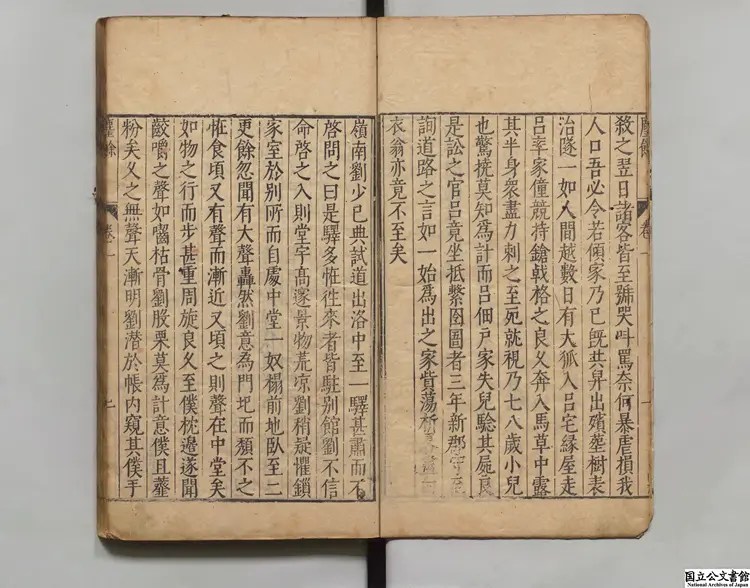 麈餘
卷一
一
殺之翌日諸客皆至號哭叫罵奈何暴虐損我
人口吾必令若傾家乃已旣共舁出殯塟樹表
治隧一如人間越數日有大狐入吕宅緣屋走
吕幸家僮競持鎗戟格之良久奔入馬草中露
其半身衆盡力刺之至死就視乃七八歲小兒
也驚擾莫知爲計而吕佃戸家失兒驗其屍良
是訟之官吕竟坐抵繫囹圄者三年新郡守至
詢道路之言如一始爲出之家貲蕩析
衣翁亦竟不至矣
嶺南劉少巳典試道出洛中至一驛甚肅而不
啓問之曰是驛多恠徃來者皆駐别館劉不信
命啓之入則堂宇高邃景物荒凉劉稍疑懼鎖
家室於别所而自處中堂一奴榻前地臥至二
更餘忽聞有大聲轟然劉意為門圮而頽不之
恠食頃又有聲而漸近又頃之則聲在中堂矣
如物之行而步甚重周旋良久至僕枕邊遂聞
齩嚼之聲如囓枯骨劉股栗莫為計意僕且虀
粉矣久之無聲天漸明劉潜於帳内窺其僕手
麈餘
卷一
七
国立公文書館
National Archives of Japan